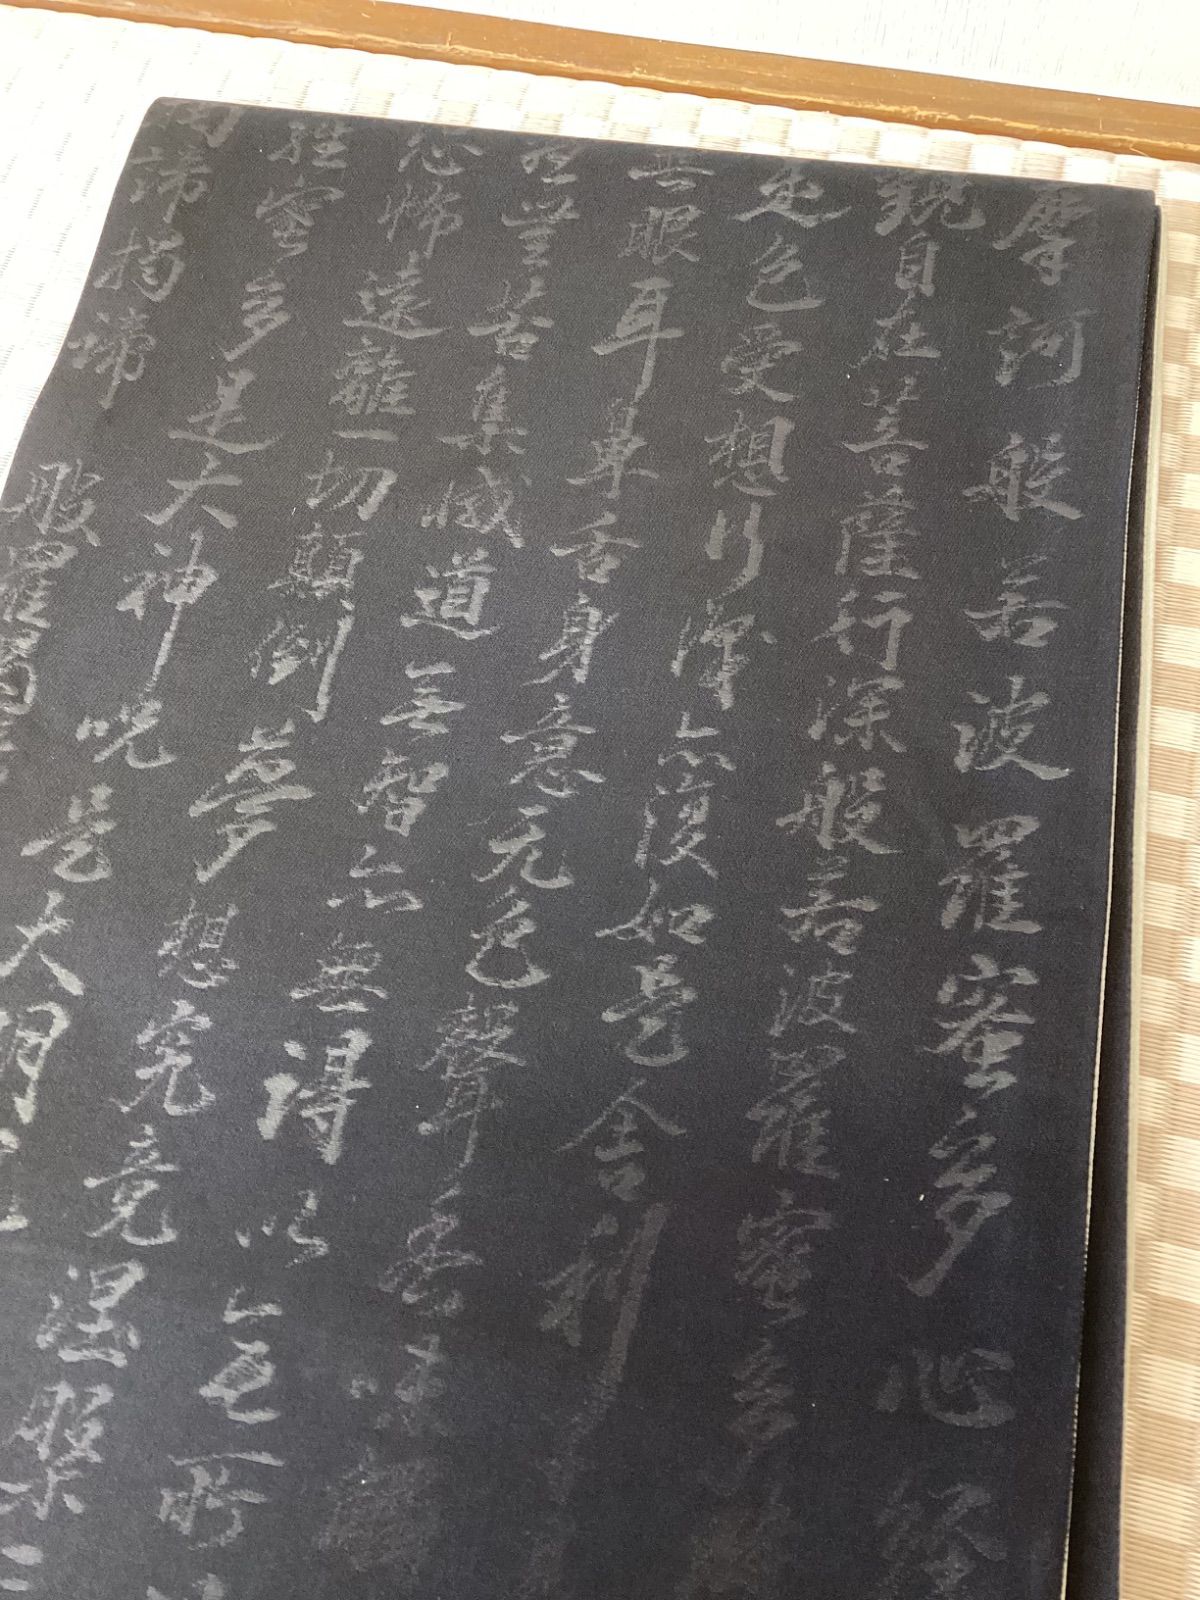 摩訶般若波羅蜜多心経
観自在菩薩行深般若波羅蜜多時
是色受想行識亦復如是舎利
無眼耳鼻舌身意无色聲香味觸
無苦集滅道無智亦無得以無所
恐怖遠離一切顛倒夢想究竟涅槃三
羅蜜多是大神呪是大明呪
諦揭諦 般羅揭